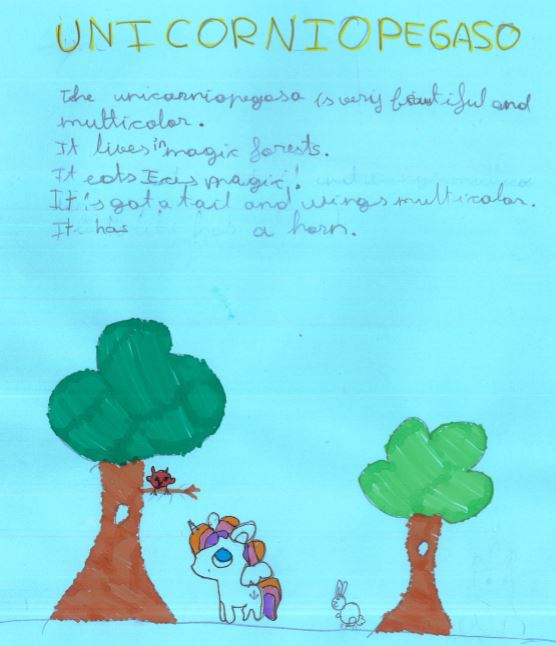 UNICORNIOPEGASO
The unicorniopegaso is very beautiful and
multicolor.
It lives in magic forests.
It eats magic!
It is got a tail and wings multicolor.
It has a horn.